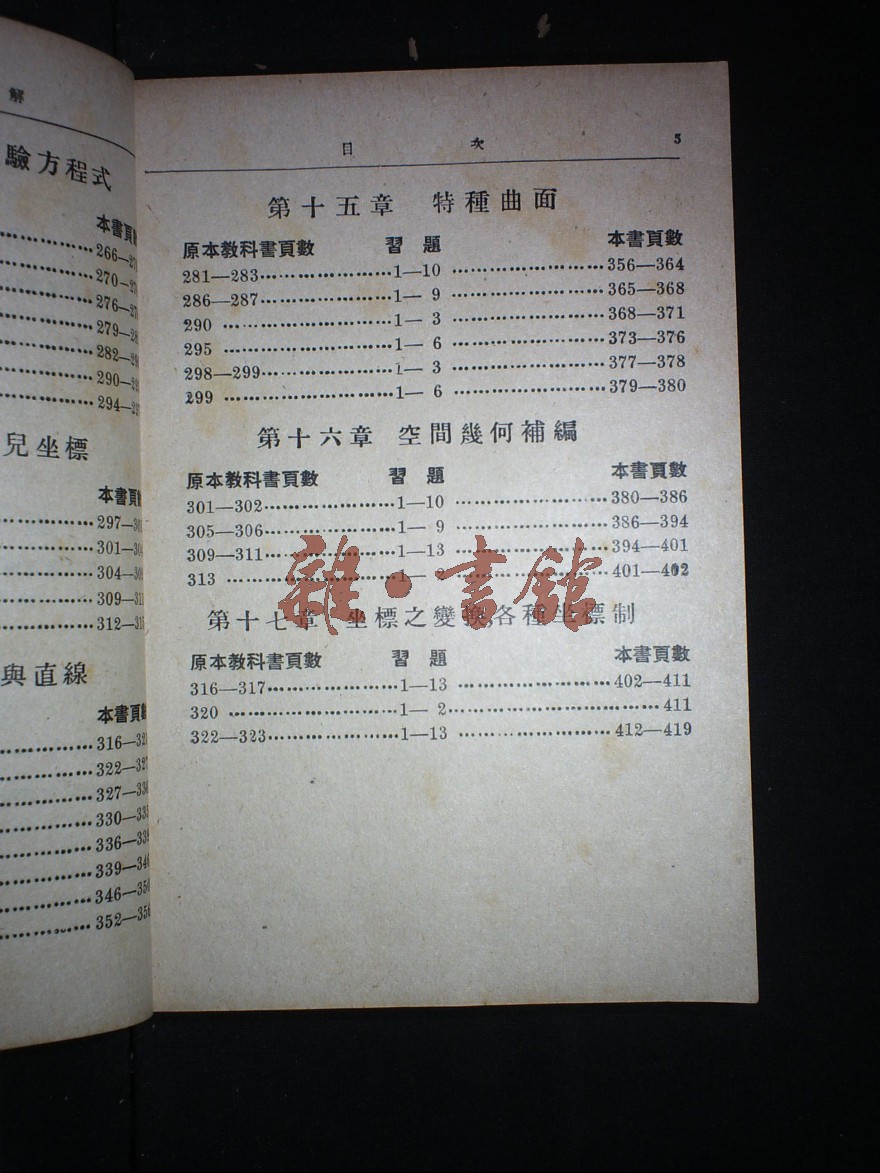 解
驗方程式
本書頁
266—
270—
276—
279—
282—
290—
294—
兒坐標
本書頁
297—
301—
304—
309—
312—
與直線
本書頁
316—
322—
327—
330—
336—
339—
346—
352—
目 次 5
第十五章 特種曲面
原本教科書頁數 習題 本書頁數
281—283……………………1—10……………………356—364
286—287……………………1— 9……………………365—368
290……………………1— 3……………………368—371
295……………………1— 6……………………373—376
298—299……………………1— 3……………………377—378
299……………………1— 6……………………379—380
第十六章 空間幾何補編
原本教科書頁數 習題 本書頁數
301—302……………………1—10……………………380—386
305—306……………………1— 9……………………386—394
309—311……………………1—13……………………394—401
313……………………1—……………………401—402
雜·書館
第十七章 坐標之變換,各種坐標制
原本教科書頁數 習題 本書頁數
316—317……………………1—13……………………402—411
320……………………1— 2……………………411
322—323……………………1—13……………………412—419